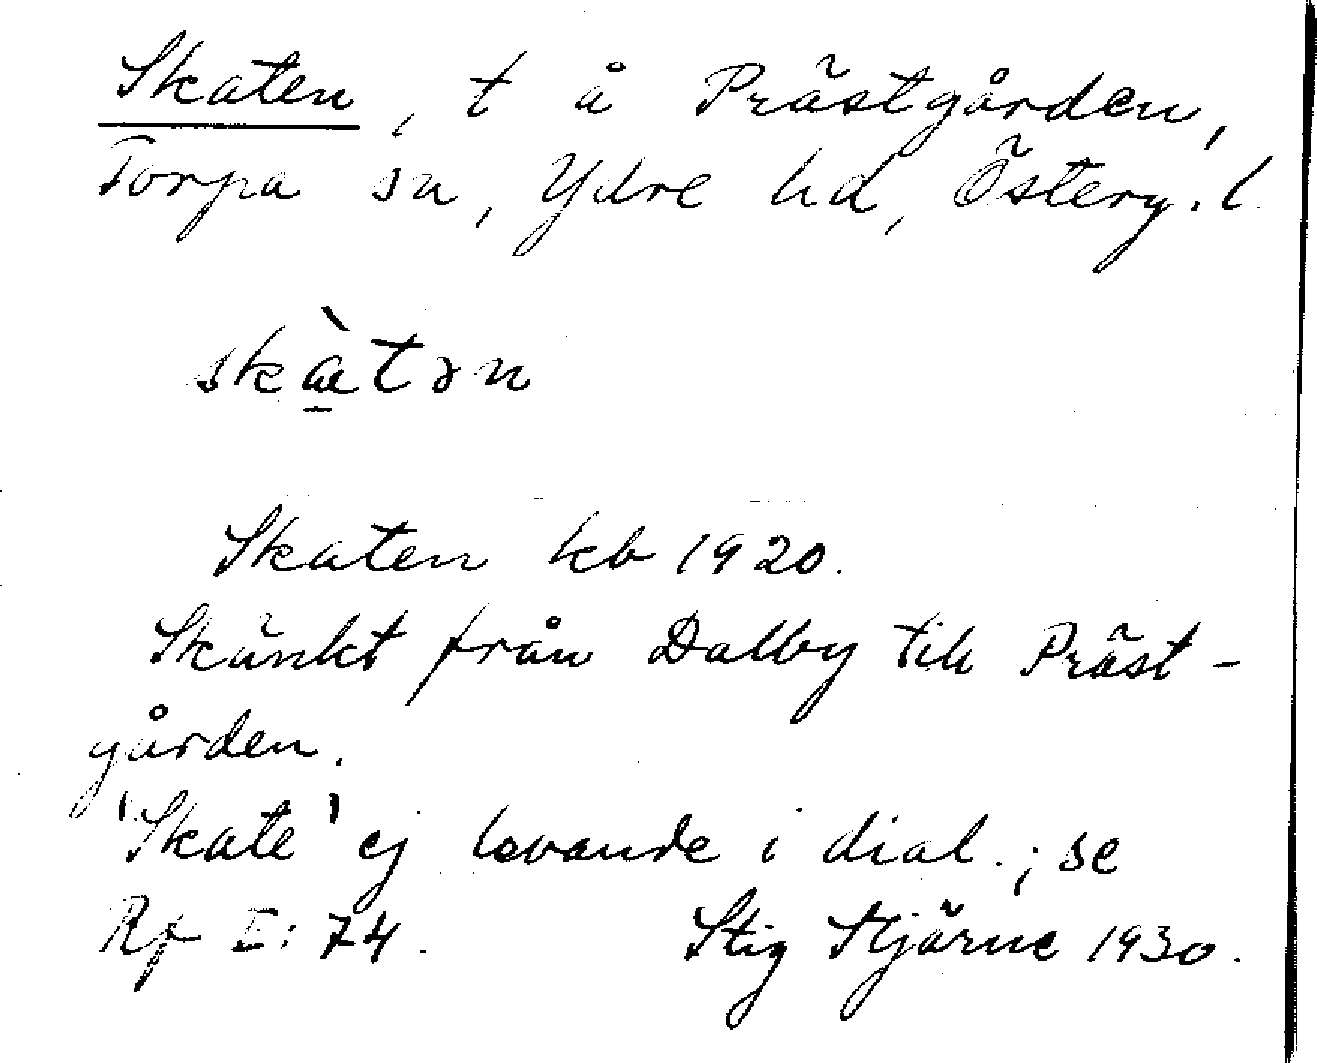 Skaten, t å Prästgården,
Torpa sn, Ydre hd, Österg. l.
skæ̀tən
Skaten kb 1920.
Skänkt från Dalby till Präst-
gården.
'Skate' ej levande i dial.; se
Rf I: 74. Stig Stjärne 1930.